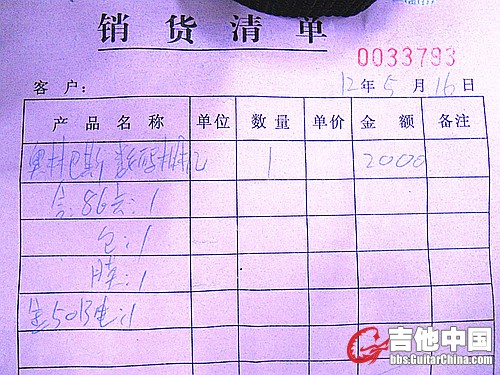 销货清单
0033793
客户： 12年5月16日
产品名称 单位 数量 单价 金额 备注
奥林巴斯 数码相机 1 2000
含：8G卡：1
包：1
膜：1
吉他中国
bbs.GuitarChina.com